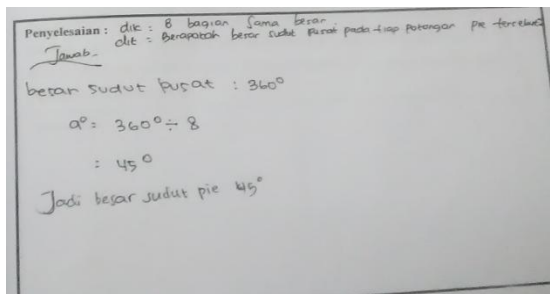 Penyelesaian : dik : 8 bagian sama besar.
dit : Berapakah besar sudut pusat pada tiap potongan pie tersebut
Jawab
besar sudut pusat : 360°
a° = 360° ÷ 8
: 45°
Jadi besar sudut pie 45°